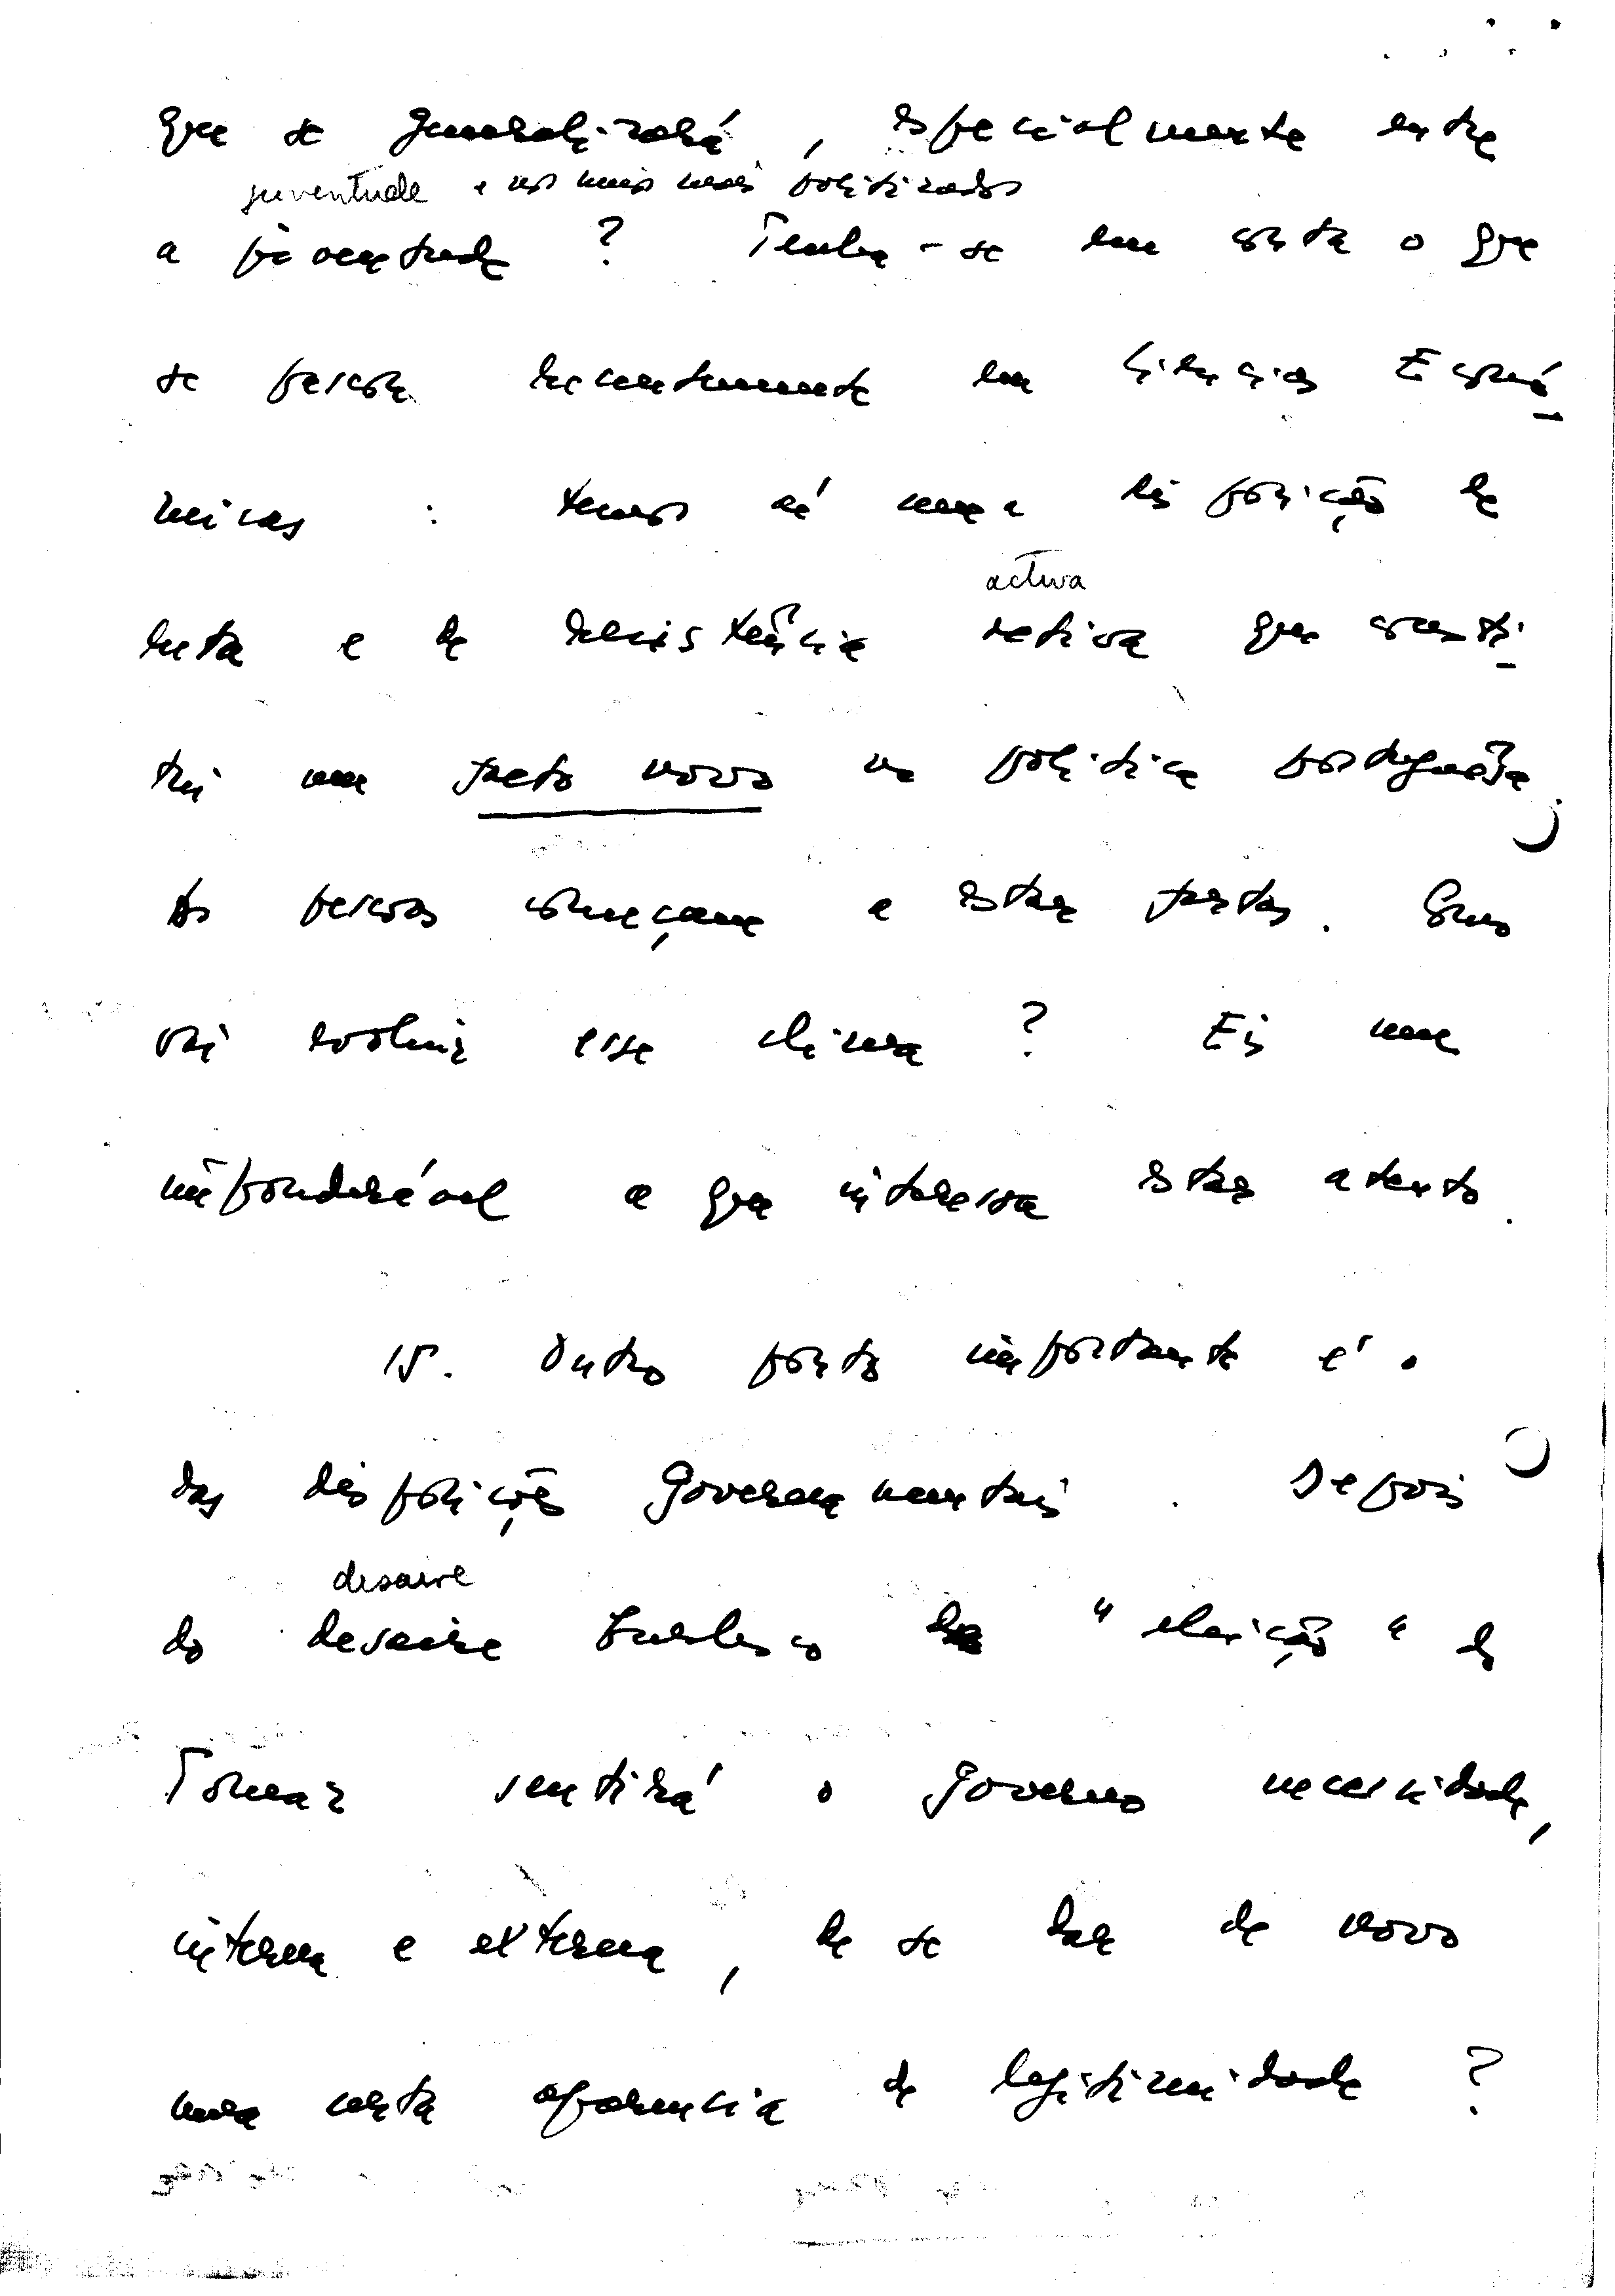 que se generalizará, especialmente entre
juventude e nos meios mais politizados
a juventude? Tenha-se em conta o que
se passou recentemente em Ciências Econó
micas: temos aí uma disposição de
activa
luta e de resistência activa que consti
tui um facto novo na política portuguesa.
As pessoas começam a estar fartas. Como
vai evoluir esse clima? Eis um
imponderável a que interessa estar atento.
15. Outro ponto importante é o
das disposições governamentais. Depois
desaire
do desaire burlesco da "eleição" de
Tomaz sentirá o governo necessidade,
interna e externa, de se dar de novo
uma certa aparência de legitimidade?